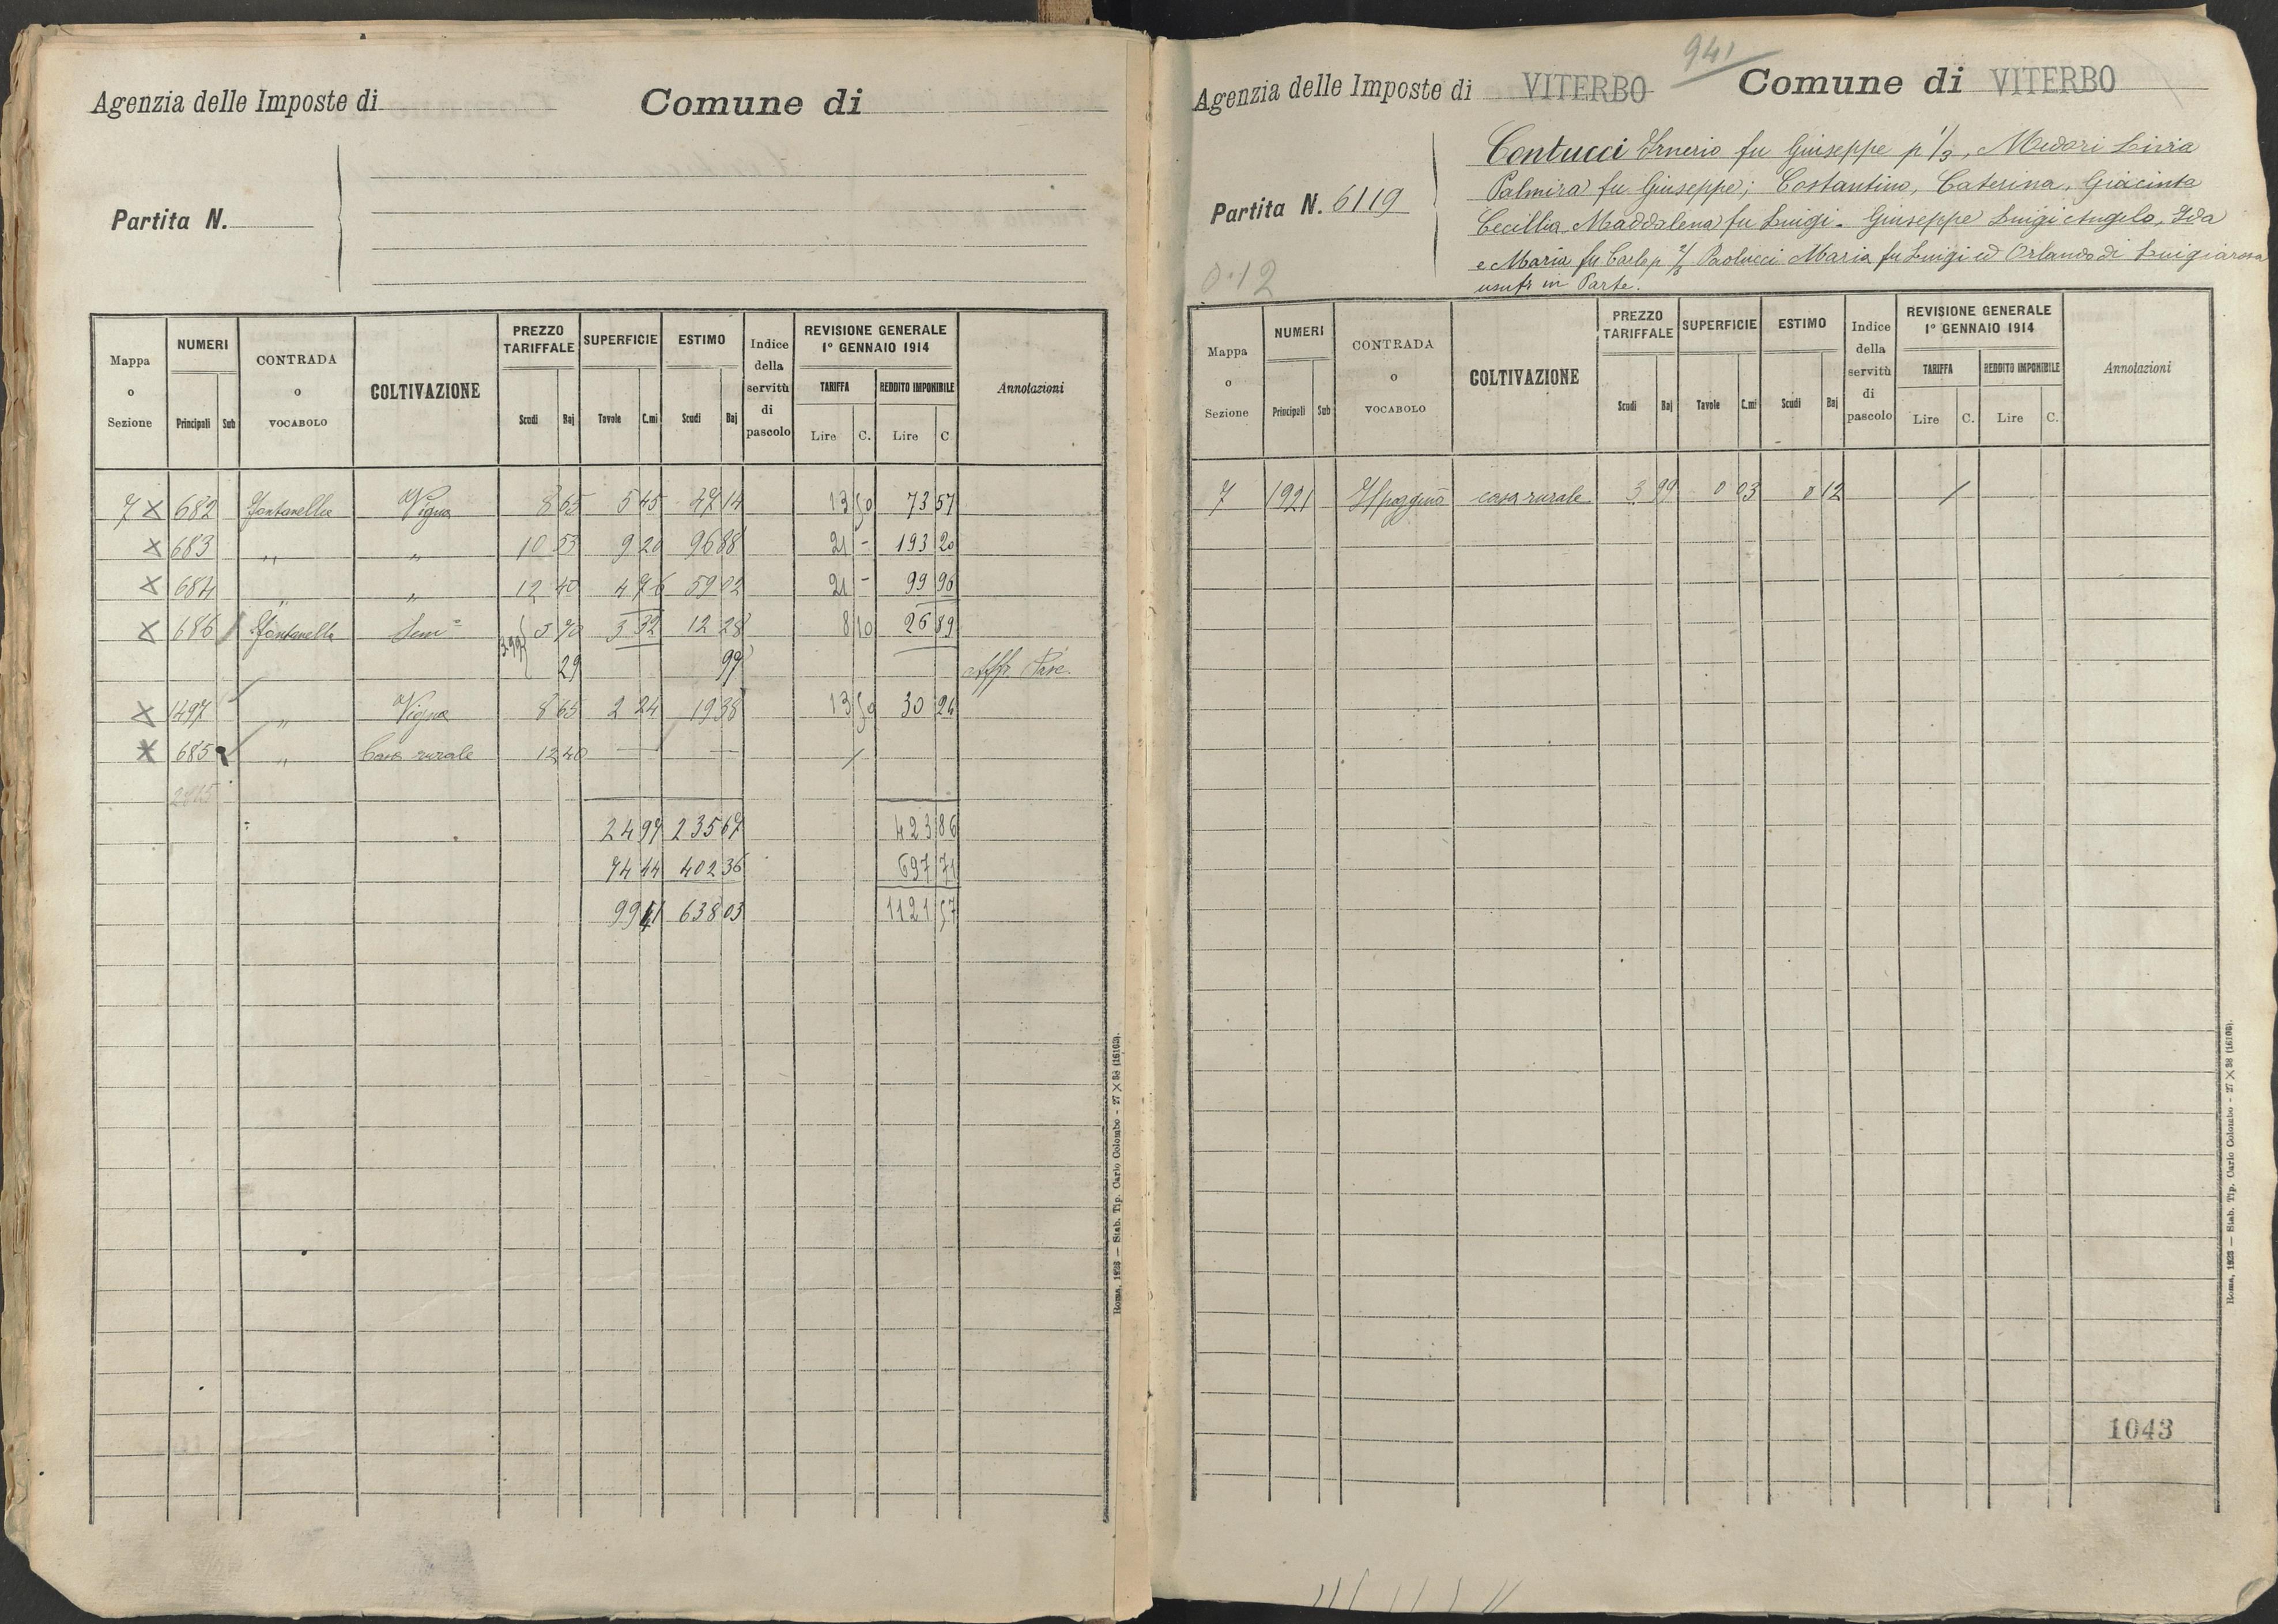 Agenzia delle Imposte di Comune di
Partita N.
Mappa o Sezione NUMERI Principali Sub CONTRADA o VOCABOLO COLTIVAZIONE PREZZO TARIFFALE Scudi Baj SUPERFICIE Tavole C.mi ESTIMO Scudi Baj Indice della servitù di pascolo REVISIONE GENERALE 1° GENNAIO 1914 TARIFFA Lire C. REDDITO IMPONIBILE Lire C Annotazioni
7 X 682 Fontanella Vigna 8 65 5 45 47 14 13 50 73 57
X 683 " " 10 53 9 20 96 88 21 - 193 20
X 684 " " 12 40 4 76 59 02 21 - 99 96
X 686 Fontanella Sem° 3 70 3 32 12 28 8 10 26 89
3.99 29 99 Affr. Pasc.
X 1497 " Vigna 8 65 2 24 19 38 13 50 30 24
X 685 " Casa rurale 12 40 — — /
24 97 235 67 423 86
74 44 402 36 697 71
99 41 638 03 1121 57
Roma, 1923 — Stab. Tip. Carlo Colombo - 27 X 38 (16103).
941
Agenzia delle Imposte di VITERBO Comune di VITERBO
Contucci Irnerio fu Giuseppe p 1/3, Medori Livia
Partita N. 6119
Palmira fu Giuseppe; Costantino, Caterina, Giacinta
Cecillia, Maddalena fu Luigi. Giuseppe Luigi Angelo, Ida
e Maria fu Carlo p 2/3 Paolucci Maria fu Luigi ed Orlando di Luigiarosa
usufr in Parte.
0.12
Mappa o Sezione NUMERI Principali Sub CONTRADA o VOCABOLO COLTIVAZIONE PREZZO TARIFFALE Scudi Baj SUPERFICIE Tavole C.mi ESTIMO Scudi Baj Indice della servitù di pascolo REVISIONE GENERALE 1° GENNAIO 1914 TARIFFA Lire C. REDDITO IMPONIBILE Lire C. Annotazioni
7 1921 casa rurale 3 99 0 03 0 12 /
1043
Roma, 1923 — Stab. Tip. Carlo Colombo - 27 X 38 (16103).